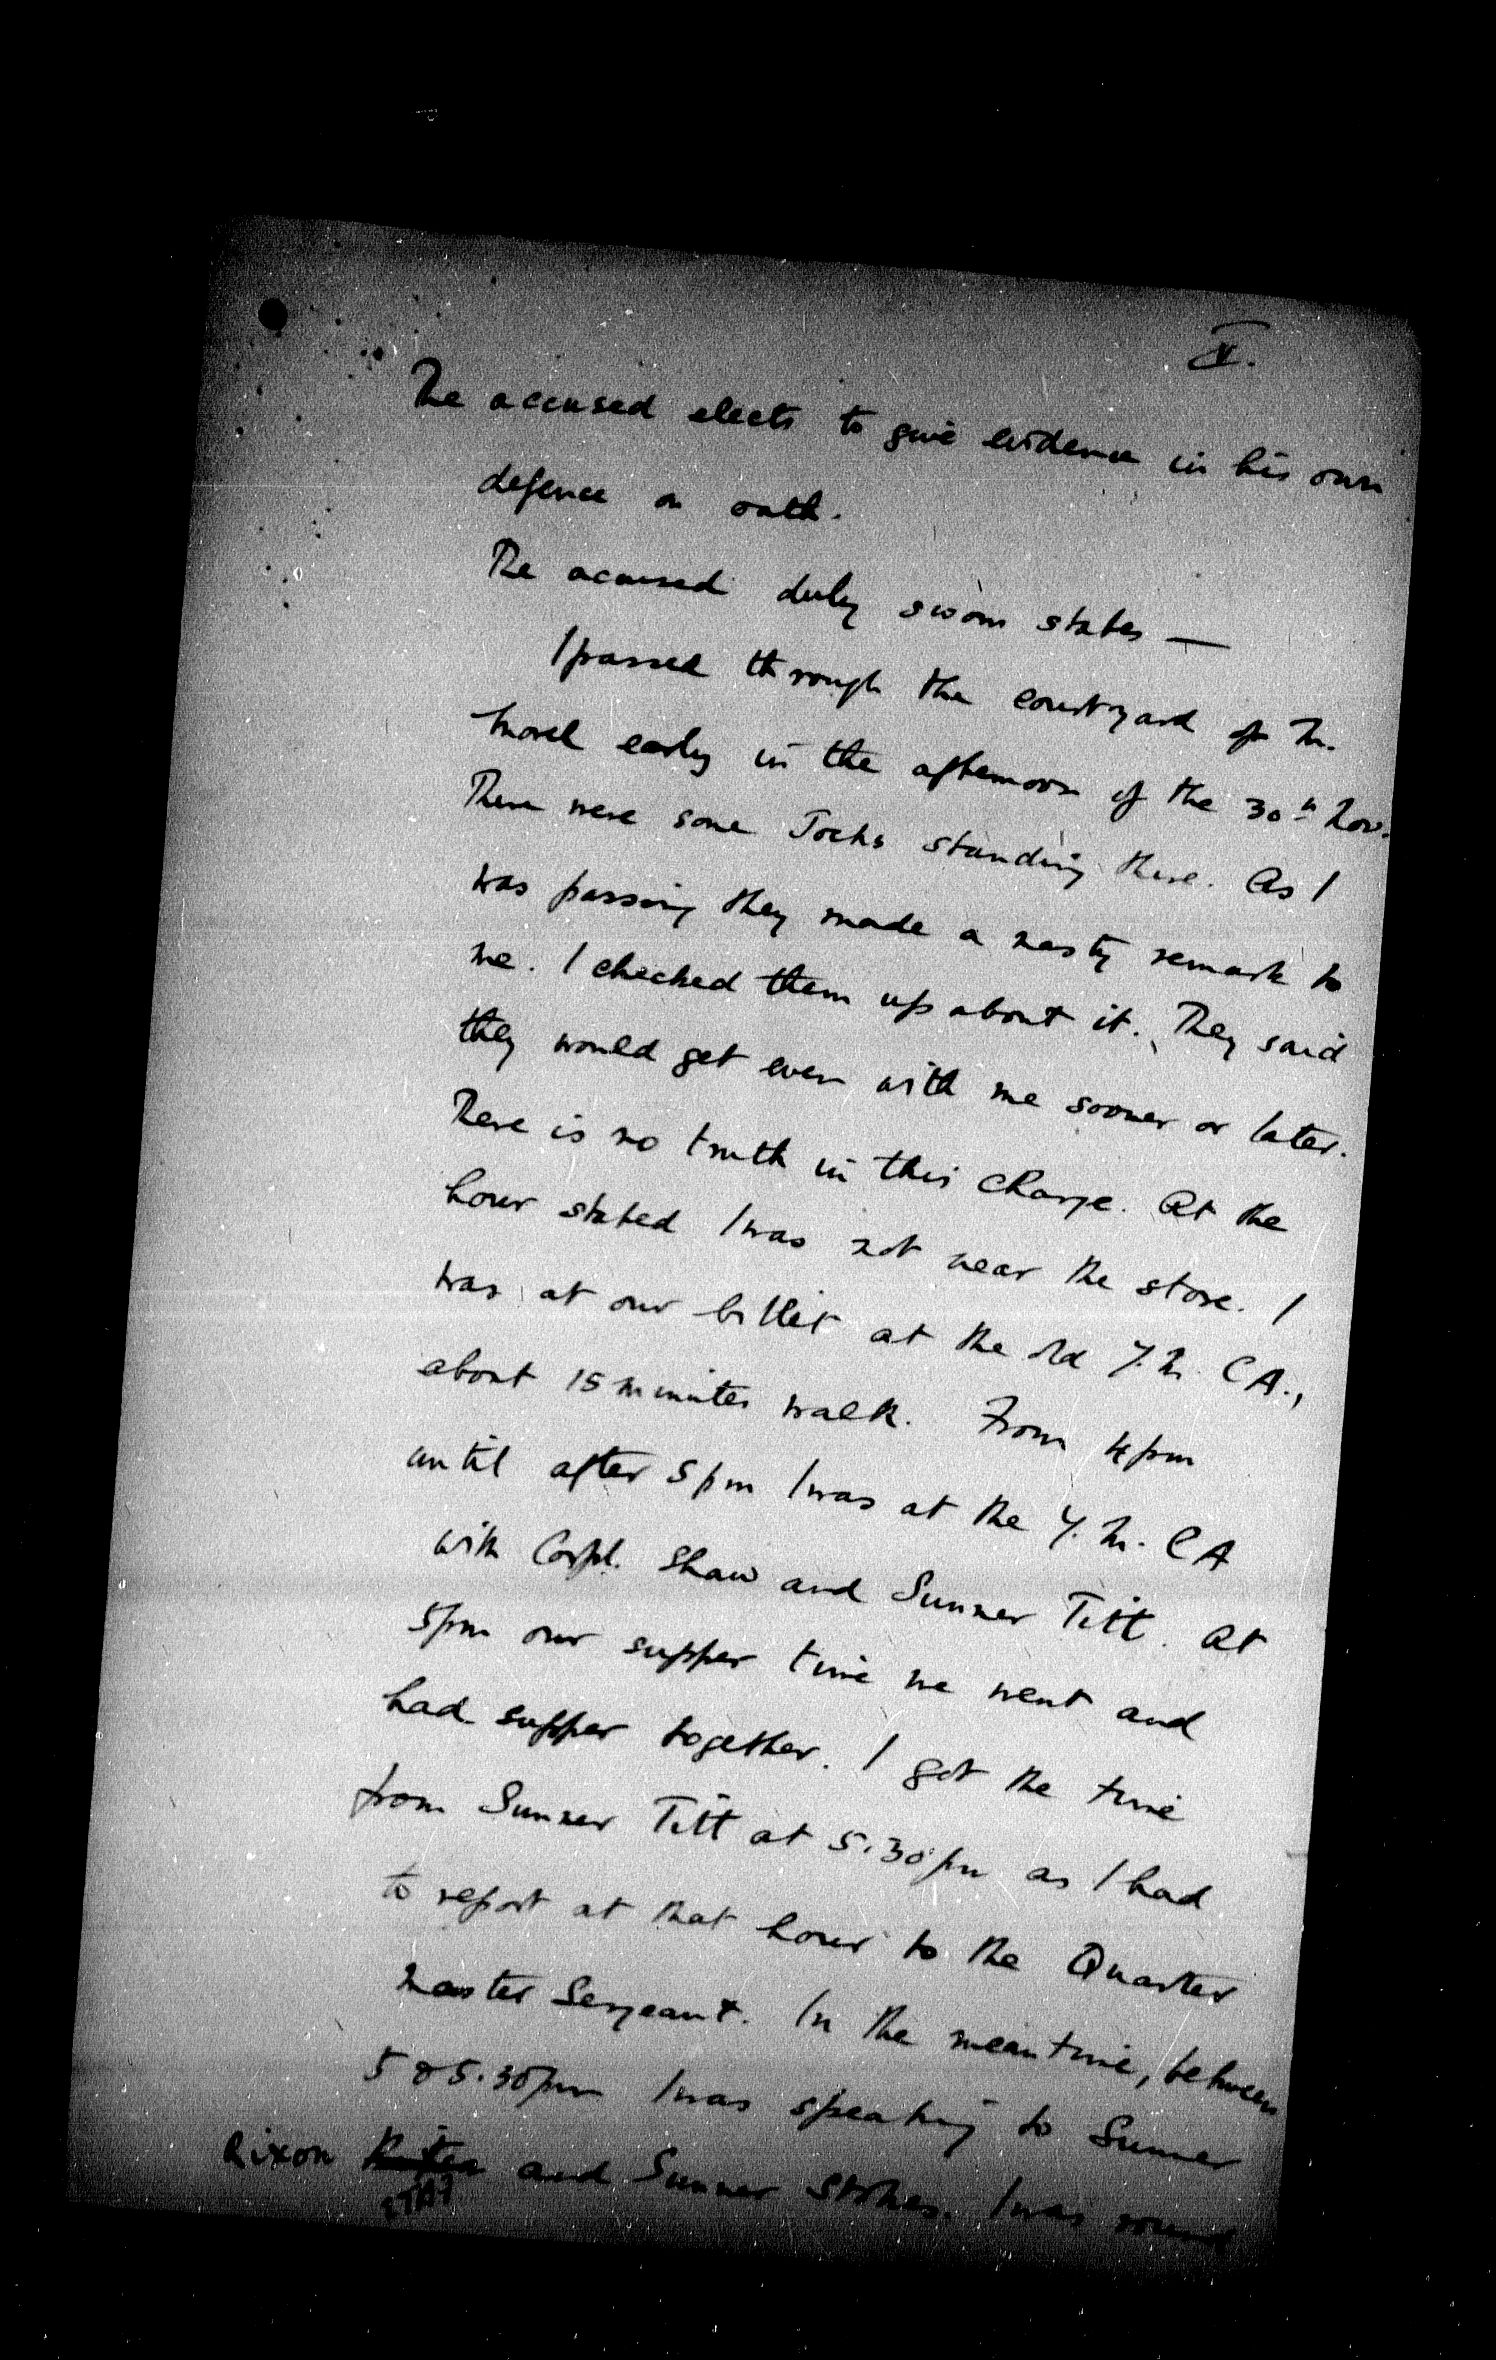 V.
The accused elects to give evidence in his own
defence on oath.
The accused duly sworn states —
I passed through the courtyard of M.
Morel early in the afternoon of the 30th Nov.
There were some Jocks standing there. As I
was passing they made a nasty remark to
me. I checked them up about it. They said
they would get even with me sooner or later.
There is no truth in this charge. At the
hour stated I was not near the store. I
was at our billet at the old Y.M.CA.,
about 15 minutes walk. From 4 pm
until after 5 pm I was at the Y.M.CA
with Corpl. Shaw and Gunner Titt. At
5 pm our supper time we went and
had supper together. I got the time
from Gunner Titt at 5.30 pm as I had
to report at that hour to the Quarter
Master Sergeant. In the meantime, between
5 & 5.30 pm I was speaking to Gunner
Rixon and Gunner Stokes. I was round